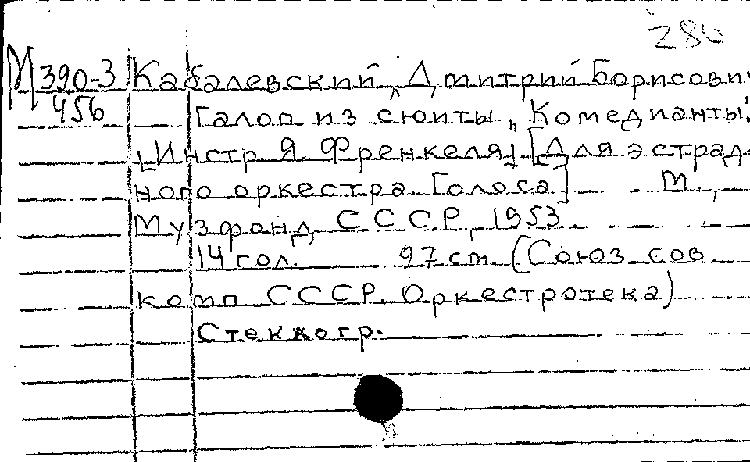 286
М 390-3 Кабалевский, Дмитрий Борисович
456 Галоп из сюиты „Комедианты".
[Инстр. Я. Френкеля] [Для эстрад-
ного оркестра. Голоса] М.,
Музфонд СССР, 1953.
14 гол. 97 cm. (Союз сов.
комп. СССР. Оркестротека)
Стеклогр.